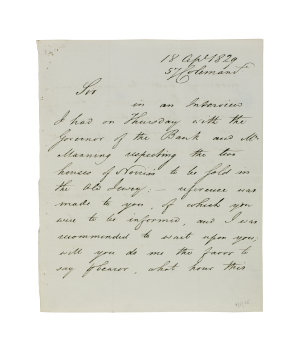 18 Apl 1829
57 Coleman St
Sir
in an Interview
I had on Thursday with the
Governor of the Bank and Mr
Manning respecting the two
houses of Norris to be sold in
the Old Jewry; — reference was
made to you, of which you
were to be informed, and I was
recommended to wait upon you;
will you do me the favor to
say what hour this